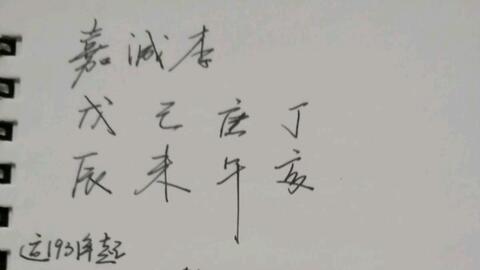 嘉减李
戊己庚丁
辰未午亥
这1931年起